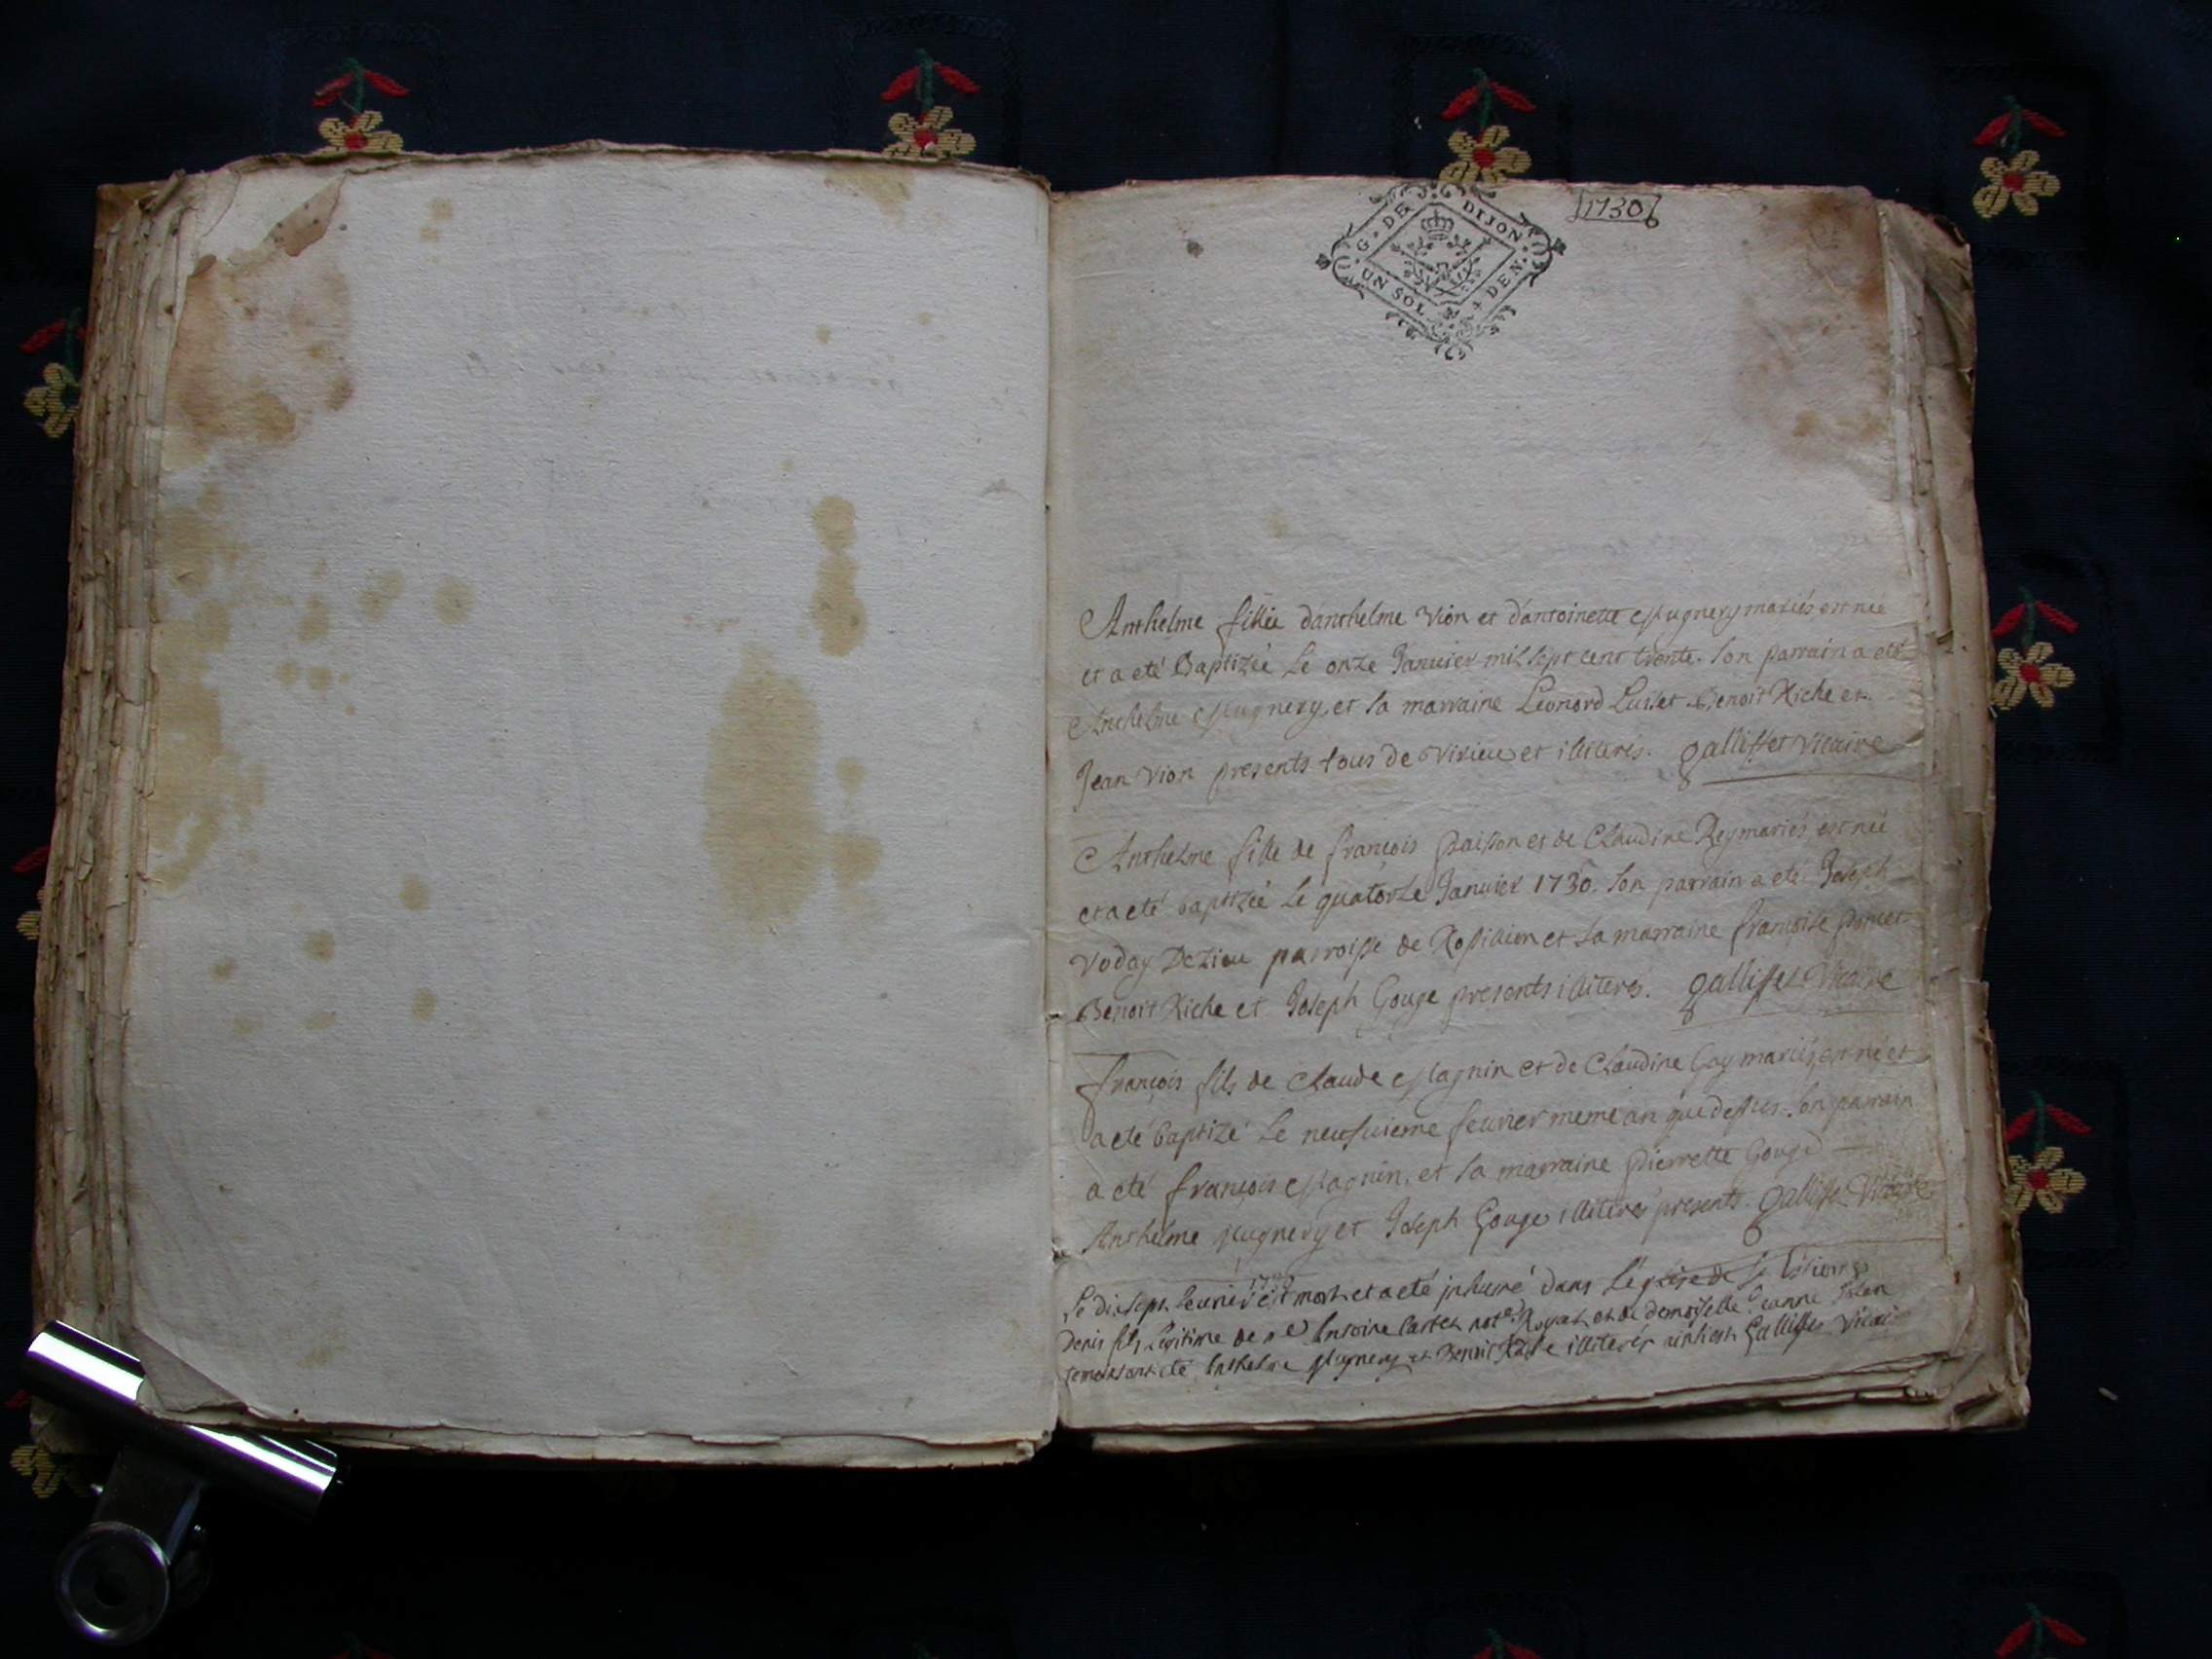 G. DE DIJON
UN SOL. DEN.
1730
Anthelme fillie danthelme Vion et d'antoinette Mugnery mariés, est née
et a eté Baptizée Le onze Januier mil sept cent trente. Son parrain a eté
Anthelme Mugnery, et sa marraine Leonord Lullet Benoit Riche et
Jean Vion presents tous de Virieu et illiterés. gallisset vicaire
Anthelme fille de françois paisson et de Claudine Rey mariés, est née
et a eté baptizée Le quatorze Januier 1730. Son parrain a eté Joseph
Voday Dezieu parroisse de Rossillion et sa marraine françoise
Benoit Riche et Joseph Gouge presents illiterés. gallisset Vicaire
françois fils de Claude Magnin et de Claudine Gay mariés, est né et
a eté baptizé Le neufuieme feurier meme an que dessus. Son parrain
a eté françois Magnin, et sa marraine pierrette Gouge
Anthelme Mugnery et Joseph Gouge illiterés presents. gallisset Vicaire
Le dix sept feurier 1730 est mort et a eté inhumé dans L'église de St
Denis fils Legitime de Antoine Royal et de demoiselle
temoins ont eté Anthelme Mugnery et Benoit Riche illiterés Gallisset vicaire